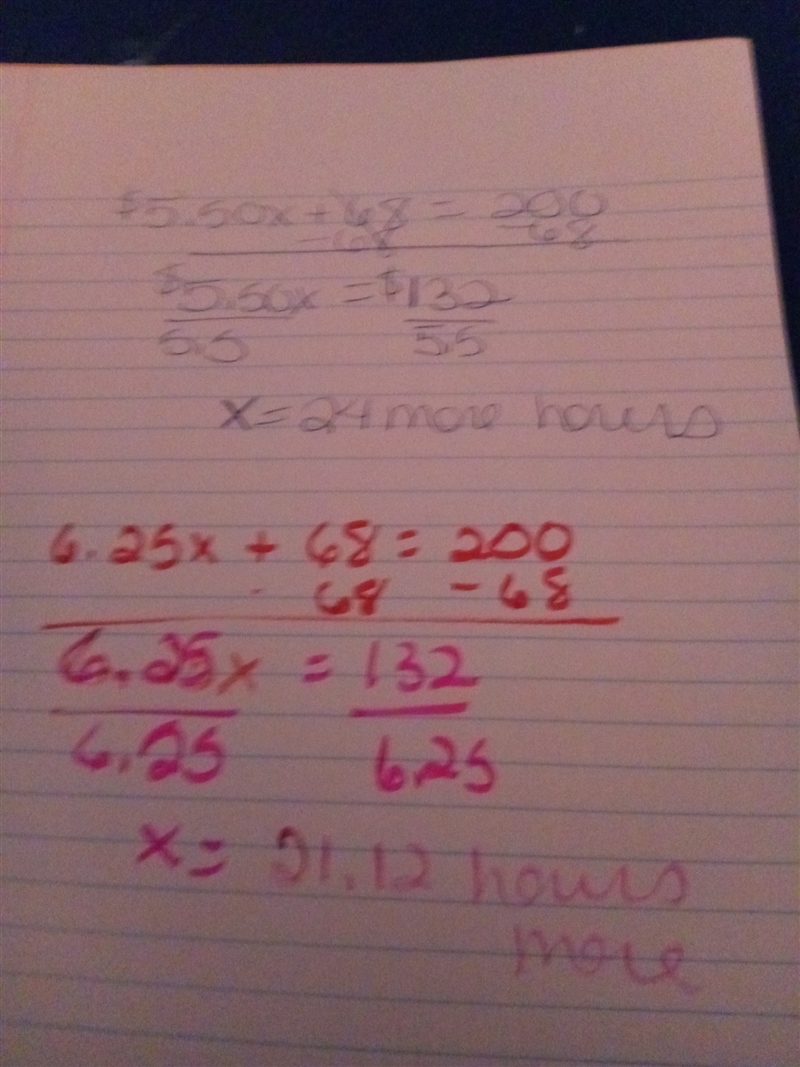 $5.50x + 68 = 200
- 68 - 68
$5.50x = $132
5.5 5.5
x = 24 more hours
6.25x + 68 = 200
- 68 - 68
6.25x = 132
6.25 6.25
x = 21.12 hours
more